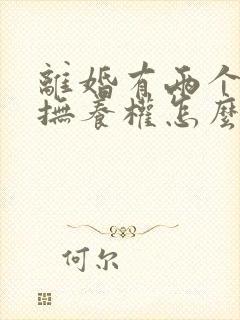 離婚有兩个
撫養權怎麼
何尔